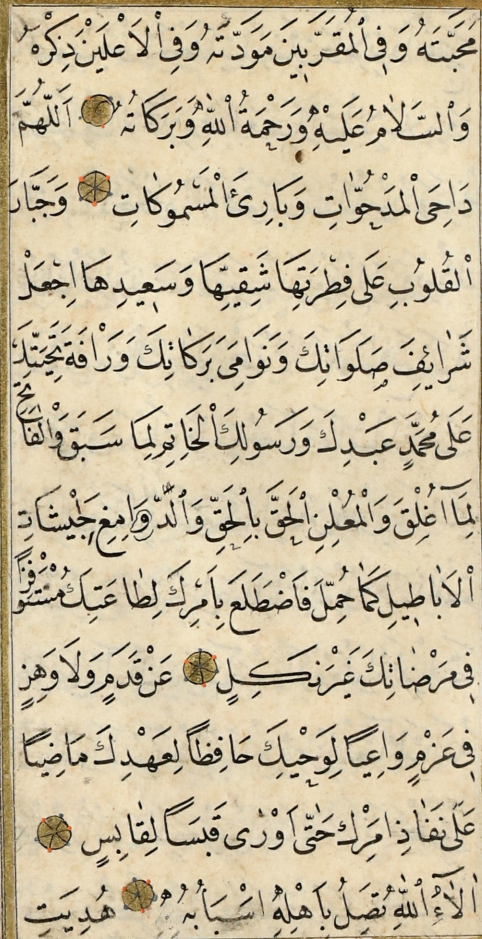 مَحَبَّتَهُ وَفِي ٱلْمُقَرَّبِينَ مَوَدَّتَهُ وَفِي ٱلْأَعْلَيْنَ ذِكْرَهُ
وَٱلسَّلَامُ عَلَيْهِ وَرَحْمَةُ ٱللّٰهِ وَبَرَكَاتُهُ اَللّٰهُمَّ
دَاحِيَ ٱلْمَدْحُوَّاتِ وَبَارِئَ ٱلْمَسْمُوكَاتِ وَجَبَّارَ
ٱلْقُلُوبِ عَلَى فِطْرَتِهَا شَقِيِّهَا وَسَعِيدِهَا اِجْعَلْ
شَرَائِفَ صَلَوَاتِكَ وَنَوَامِيَ بَرَكَاتِكَ وَرَأْفَةَ تَحَنُّنِكَ
عَلَى مُحَمَّدٍ عَبْدِكَ وَرَسُولِكَ ٱلْخَاتِمِ لِمَا سَبَقَ وَٱلْفَاتِحِ
لِمَا أُغْلِقَ وَٱلْمُعْلِنِ ٱلْحَقَّ بِٱلْحَقِّ وَٱلدَّامِغِ جَيْشَاتِ
ٱلْاَبَاطِيلِ كَمَا حُمِّلَ فَاضْطَلَعَ بِاَمْرِكَ لِطَاعَتِكَ مُسْتَوْفِزًا
فِي مَرْضَاتِكَ غَيْرَ نَكِلٍ عَنْ قَدَمٍ وَلَا وَهِنٍ
فِي عَزْمٍ وَاعِيًا لِوَحْيِكَ حَافِظًا لِعَهْدِكَ مَاضِيًا
عَلَى نَفَاذِ اَمْرِكَ حَتَّى اَوْرَى قَبَسًا لِقَابِسٍ
اٰلَاءُ ٱللّٰهِ تَصِلُ بِاَهْلِهِ اَسْبَابُهُ بِهِ هُدِيَتِ